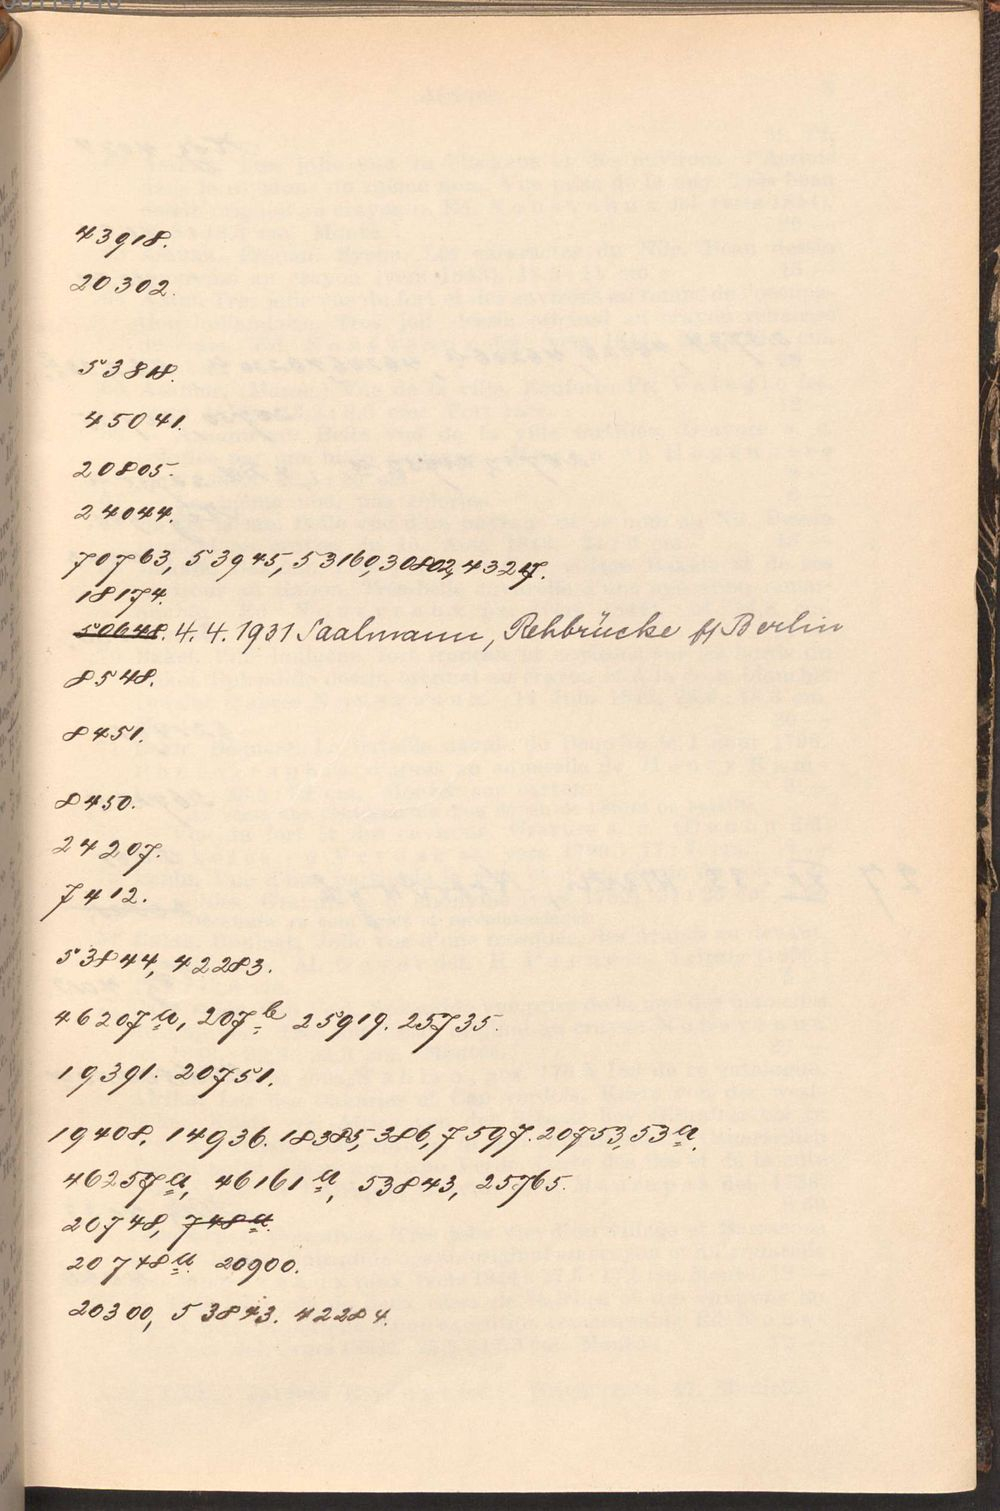 43918.
20302.
53818.
45041.
20805.
24044.
70763, 53945, 53160, 30802, 43217.
18174.
50648. 4.4.1931 Saalmann, Rehbrücke b/ Berlin
8548.
8451.
8450.
24207.
7412.
53844, 42283.
46207a, 207b 25919. 25735.
19391. 20751.
19408. 14936. 18385, 386, 7597. 20753, 53a.
46257a, 46161a, 53843, 25765.
20748, 748a.
20748a. 20900.
20300, 53843. 42284.